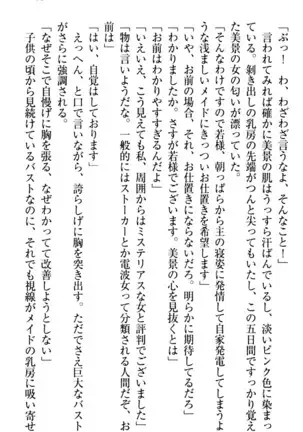 「ぶっ！　わ、わざわざ言うなよ、そんなこと！」
言われてみれば確かに美景の肌はうっすら汗ばんでいるし、淡いピンク色に染まっ
ている。剝き出しの乳房の先端がつんと尖ってもいたし、この五日間ですっかり覚え
た美景の女の匂いが漂っていた。
「そんなわけですので若様、朝っぱらから主の寝姿に発情して自家発電してしまうよ
うな浅ましいメイドにきっついお仕置きを希望します」
「いや、お前の場合、それ、お仕置きにならないだろ。明らかに期待してるだろ」
「おわかりましたか。さすが若様でございます。美景の心を見抜くとは」
「お前はわかりやすすぎるんだよ」
「いえいえ、こう見えても私、周囲からはミステリアスな女と評判でございました」
「物は言いようだな。一般的にはストーカーとか電波女って分類される人間だぞ、お
前は」
「はい、自覚はしております」
えっへん、と口で言いながら、誇らしげに胸を突き出す。ただでさえ巨大なバスト
がさらに強調される。
「なぜそこで自慢げに胸を張る、なぜわかってて改善しようとしない」
子供の頃から見続けているバストなのに、それでも視線がメイドの乳房に吸い寄せ